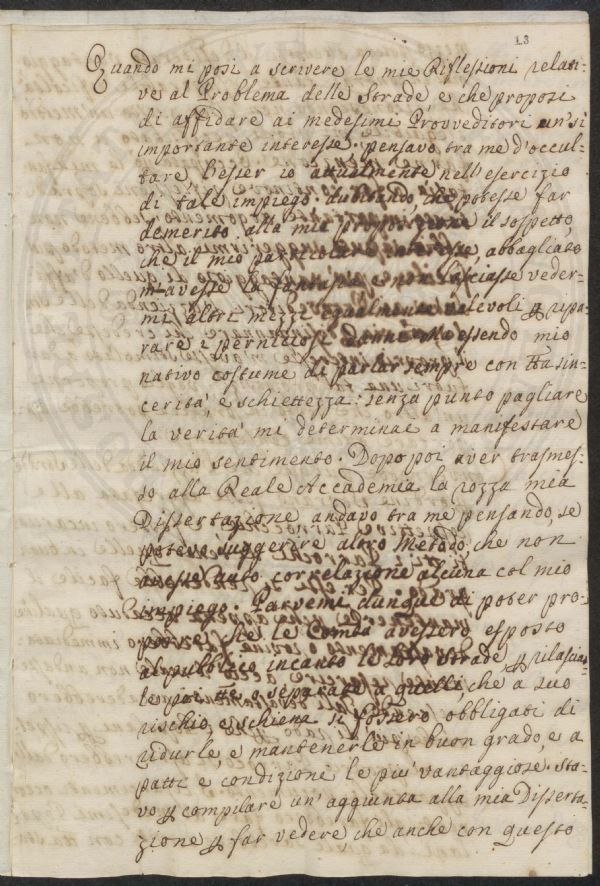 13
Quando mi posi a scrivere le mie Riflessioni relati-
ve al Problema delle Strade e che proposi
di affidare ai medesimi Provveditori un' sì
importante interesse. pensavo tra me d'occul-
tare l'esser io attualmente nell'esercizio
di tale impiego. dubitando, che potesse far
demerito, alla mia proposizione il sospetto,
che il mio particolare interesse, abbagliato
m'avesse la fantasia e non lasciasse veder-
mi altri mezzi egualmente valevoli ꝑ ripa-
rare i perniciosi danni. Ma essendo mio
nativo costume di parlar sempre con tta sin-
cerità, e schiettezza: senza punto pagliare
la verità mi determinai a manifestare
il mio sentimento. Dopo poi aver trasmes-
so alla Reale Accademia la rozza mia
Dissertazione andavo tra me pensando, se
potevo suggerire altro Metodo, che non
avesse auto, correlazione alcuna col mio
impiego. Parvemi dunque di poter pro-
porre, che le Comtà avessero esposto
al pubblico incanto le loro strade ꝑ rilasciar-
le poi tte o separate a quelli, che a suo
rischio, e schiena si fossero obbligati di
ridurle, e mantenerle in buon grado, e a
patti e condizioni le più vantaggiose. Sta-
vo ꝑ compilare un' aggiunta alla mia Disserta-
zione ꝑ far vedere che anche con questo